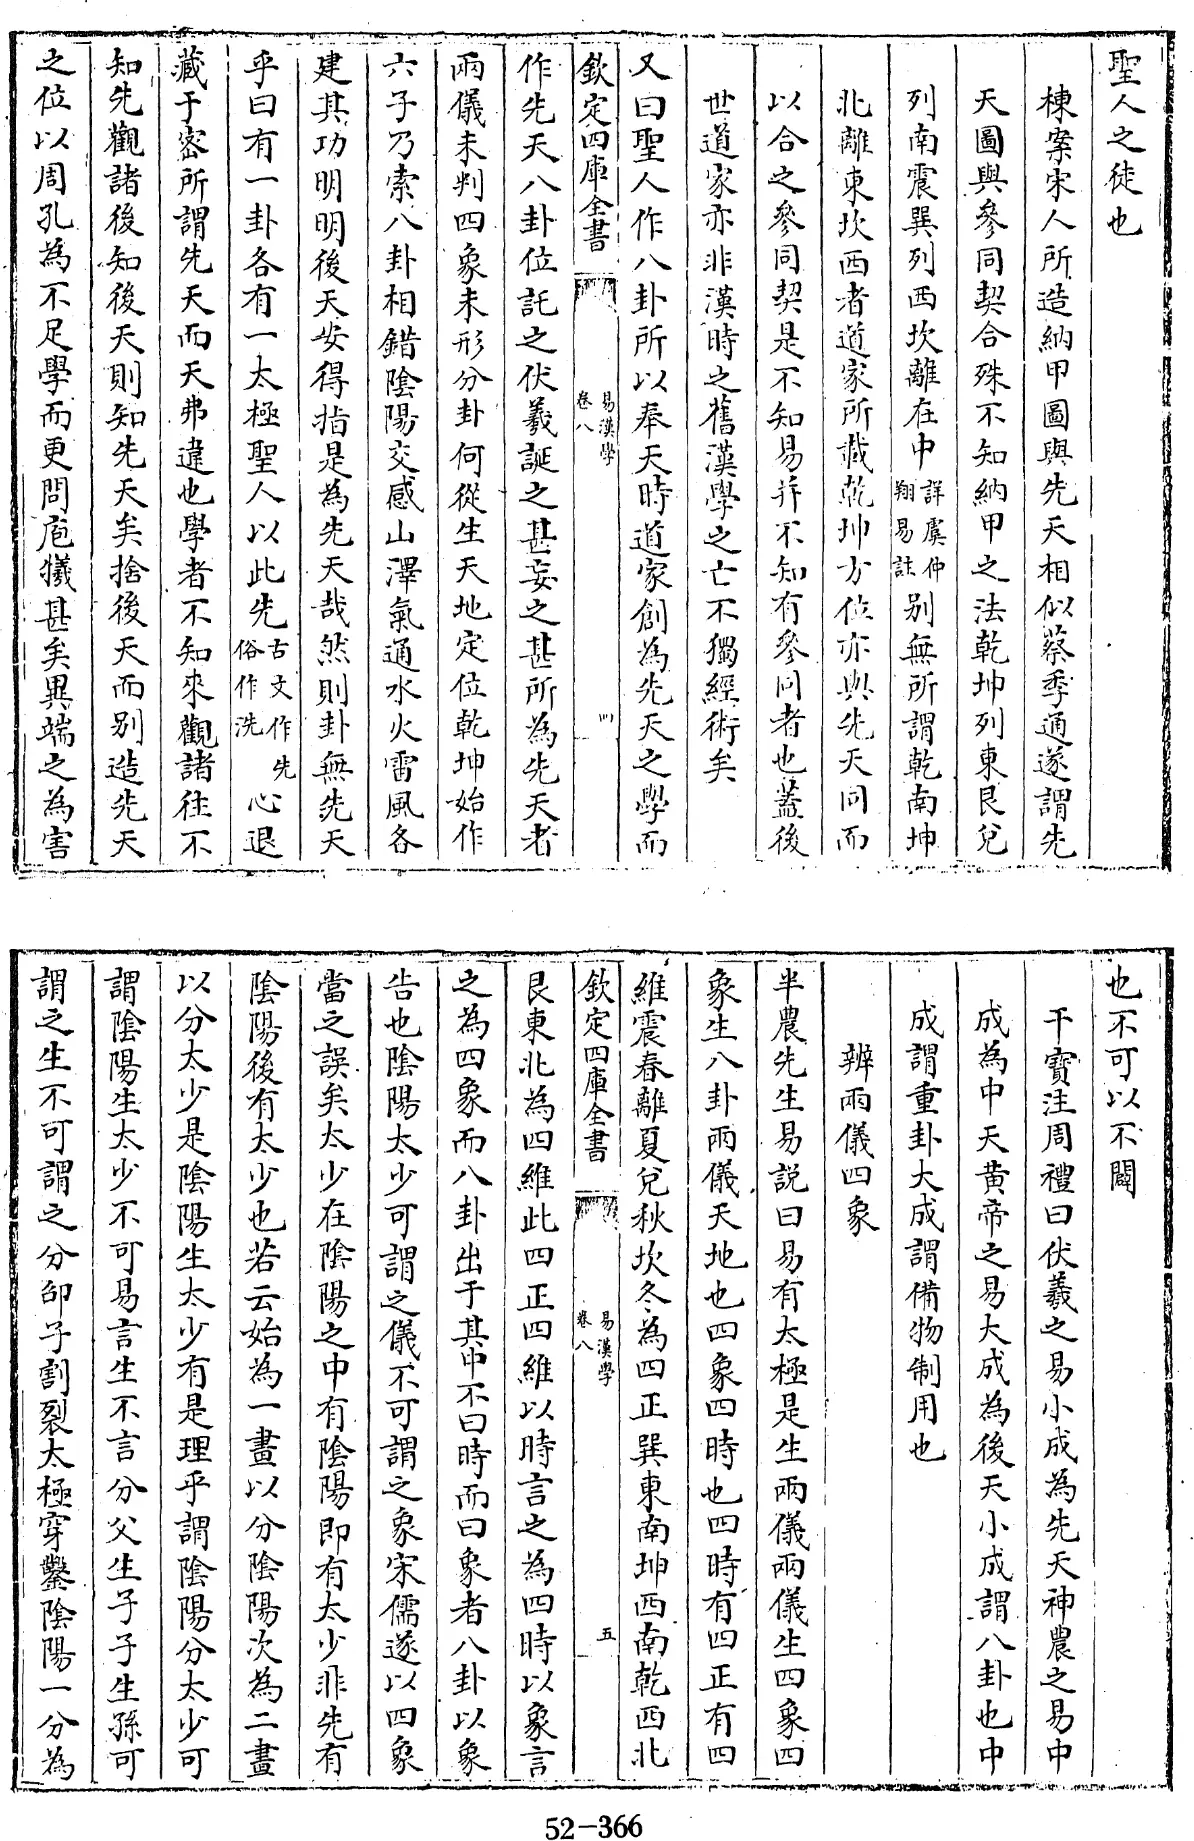 聖人之徒也
棟案宋人所造納甲圖與先天相似蔡季通遂謂先
天圖與參同契合殊不知納甲之法乾坤列東艮兌
列南震巽列西坎離在中詳虞仲翔易註別無所謂乾南坤
北離東坎西者道家所載乾坤方位亦與先天同而
以合之參同契是不知易幷不知有參同者也蓋後
世道家亦非漢時之舊漢學之亡不獨經術矣
又曰聖人作八卦所以奉天時道家創為先天之學而
欽定四庫全書 易漢學 卷八 四
作先天八卦位託之伏羲誕之甚妄之甚所為先天者
兩儀未判四象未形分卦何從生天地定位乾坤始作
六子乃索八卦相錯陰陽交感山澤氣通水火雷風各
建其功明明後天安得指是為先天哉然則卦無先天
乎曰有一卦各有一太極聖人以此先古文作先俗作洗心退
藏于密所謂先天而天弗違也學者不知來觀諸往不
知先觀諸後知後天則知先天矣捨後天而別造先天
之位以周孔為不足學而更問庖犧甚矣異端之為害
也不可以不闢
干寶注周禮曰伏羲之易小成為先天神農之易中
成為中天黄帝之易大成為後天小成謂八卦也中
成謂重卦大成謂備物制用也
辨兩儀四象
半農先生易說曰易有太極是生兩儀兩儀生四象四
象生八卦兩儀天地也四象四時也四時有四正有四
維震春離夏兌秋坎冬為四正巽東南坤西南乾西北
欽定四庫全書 易漢學 卷八 五
艮東北為四維此四正四維以時言之為四時以象言
之為四象而八卦出于其中不曰時而曰象者八卦以象
告也陰陽太少可謂之儀不可謂之象宋儒遂以四象
當之誤矣太少在陰陽之中有陰陽即有太少非先有
陰陽後有太少也若云始為一畫以分陰陽次為二畫
以分太少是陰陽生太少有是理乎謂陰陽分太少可
謂陰陽生太少不可易言生不言分父生子子生孫可
謂之生不可謂之分邵子割裂太極穿鑿陰陽一分為
52-366